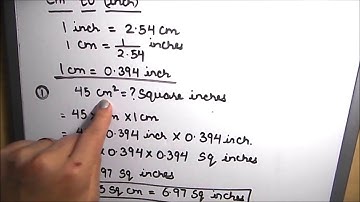 cm to (inch)
1 inch = 2.54 cm
1 cm = 1/2.54 inches
1 cm = 0.394 inch
① 45 cm² = ? Square inches
= 45 cm x 1 cm
= 0.394 inch x 0.394 inch.
x 0.394 x 0.394 sq inches
97 Sq inches
5 Sq cm = 6.97 Sq inches